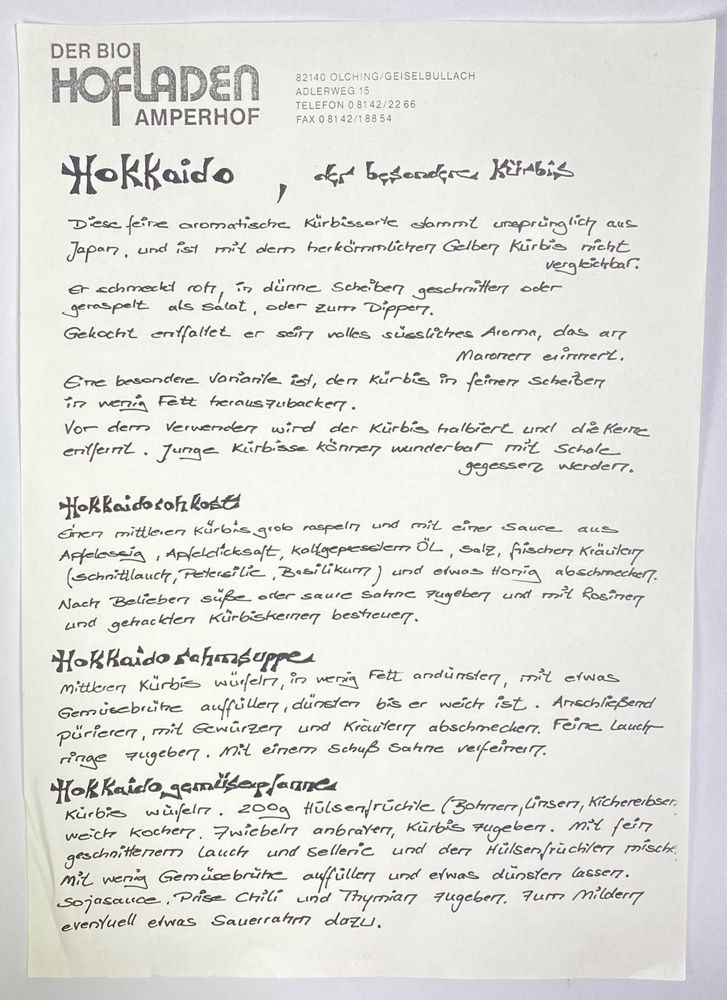 DER BIO
HOFLADEN
AMPERHOF
82140 OLCHING/GEISELBULLACH
ADLERWEG 15
TELEFON 08142/2266
FAX 08142/18854
Hokkaido, der besondere Kürbis
Diese feine aromatische Kürbissorte stammt ursprünglich aus
Japan, und ist mit dem herkömmlichen Gelben Kürbis nicht
vergleichbar.
Er schmeckt roh, in dünne Scheiben geschnitten oder
geraspelt als Salat, oder zum Dippen.
Gekocht entfaltet er sein volles süssliches Aroma, das an
Maronen erinnert.
Eine besondere Variante ist, den Kürbis in feinen Scheiben
in wenig Fett herauszubacken.
Vor dem Verwenden wird der Kürbis halbiert und die Kerne
entfernt. Junge Kürbisse können wunderbar mit Schale
gegessen werden.
Hokkaidorohkost
Einen mittleren Kürbis grob raspeln und mit einer Sauce aus
Apfelessig, Apfeldicksaft, kaltgepresstem ÖL, Salz, frischen Kräutern
(Schnittlauch, Petersilie, Basilikum) und etwas Honig abschmecken.
Nach Belieben süße oder saure Sahne zugeben und mit Rosinen
und gehackten Kürbiskernen bestreuen.
Hokkaidorahmsuppe
Mittleren Kürbis würfeln, in wenig Fett andünsten, mit etwas
Gemüsebrühe auffüllen, dünsten bis er weich ist. Anschließend
pürieren, mit Gewürzen und Kräutern abschmecken. Feine Lauch-
ringe zugeben. Mit einem Schuß Sahne verfeinern.
Hokkaidogemüsepfanne
Kürbis würfeln. 200g Hülsenfrüchte (Bohnen, Linsen, Kichererbsen
weich kochen. Zwiebeln anbraten, Kürbis zugeben. Mit fein
geschnittenem Lauch und Sellerie und den Hülsenfrüchten misch.
Mit wenig Gemüsebrühe auffüllen und etwas dünsten lassen.
Sojasauce, Prise Chili und Thymian zugeben. Zum Mildern
eventuell etwas Sauerrahm dazu.